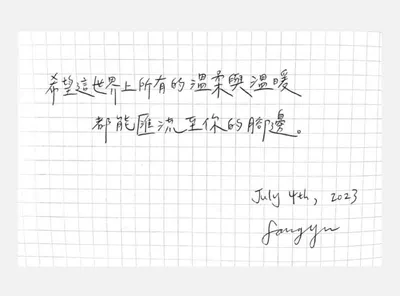 希望這世界上所有的溫柔與溫暖
都能匯流至你的腳邊。
July 4th, 2023